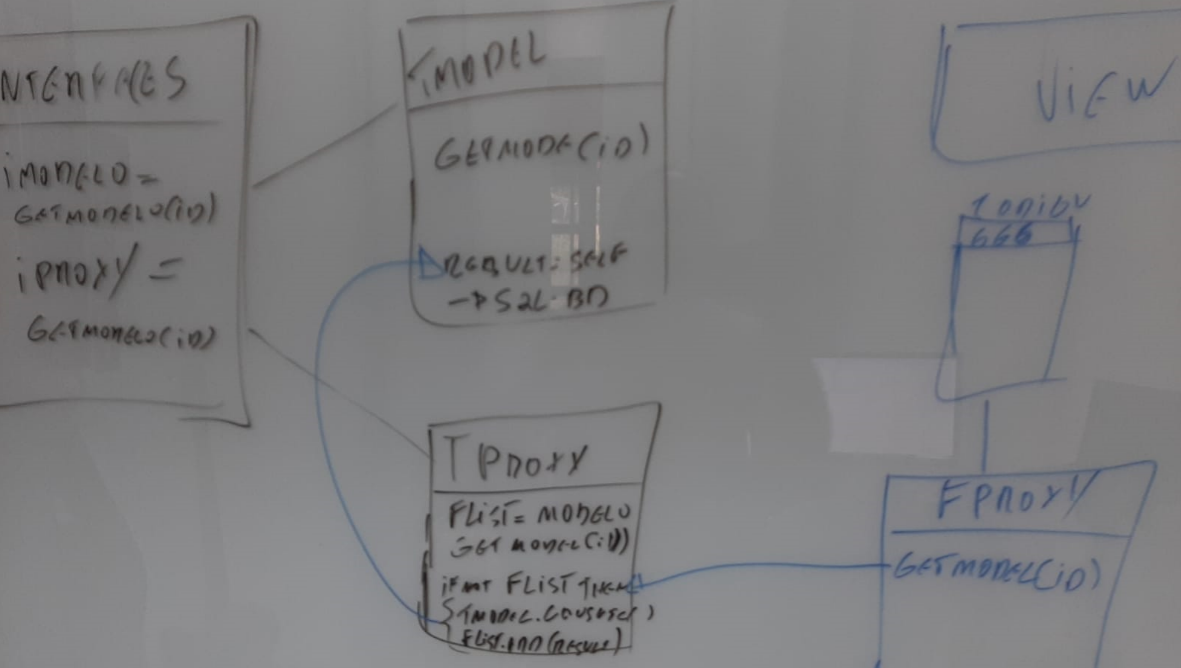 NTERFACES
iMODELO =
GETMODELO(iD)
iPROXY =
GETMODELO(iD)
TMODEL
GETMODE(iD)
RESULT:SELF
→ SQL.BD
TPROXY
FLIST = MODELO
GET MODEL(iD)
iF NOT FLIST THEN
TMODEL.
FLIST.ADD(RESULT)
ViEW
666
FPROXY
GETMODEL(iD)